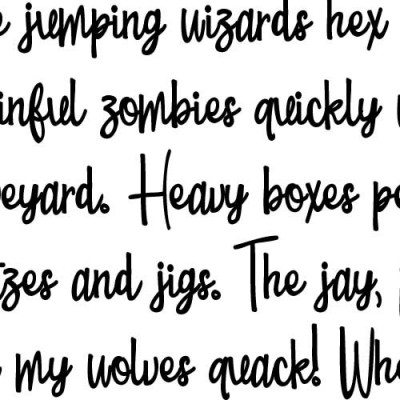 e jumping wizards hex
inful zombies quickly
eyard. Heavy boxes pe
tzes and jigs. The jay,
my wolves quack! Wha